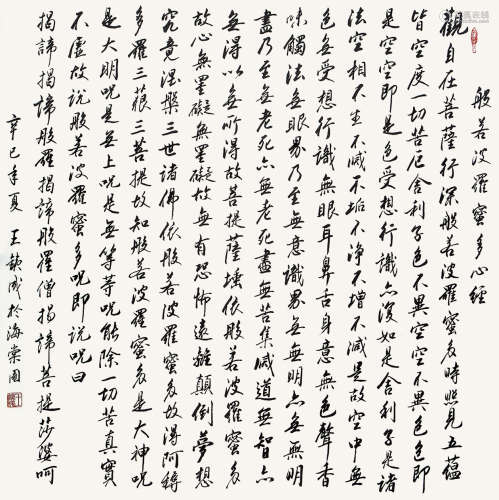 般若波羅蜜多心經
觀自在菩薩行深般若波羅蜜多時照見五蘊
皆空度一切苦厄舍利子色不異空空不異色色即
是空空即是色受想行識亦復如是舍利子是諸
法空相不生不滅不垢不淨不增不減是故空中無
色無受想行識無眼耳鼻舌身意無色聲香
味觸法無眼界乃至無意識界無無明亦無無明
盡乃至無老死亦無老死盡無苦集滅道無智亦
無得以無所得故菩提薩埵依般若波羅蜜多
故心無罣礙無罣礙故無有恐怖遠離顛倒夢想
究竟涅槃三世諸佛依般若波羅蜜多故得阿耨
多羅三藐三菩提故知般若波羅蜜多是大神呪
是大明呪是無上呪是無等等呪能除一切苦真實
不虛故說般若波羅蜜多呪即說呪曰
揭諦揭諦般羅揭諦般羅僧揭諦菩提莎婆呵
辛巳年夏王成於海棠園